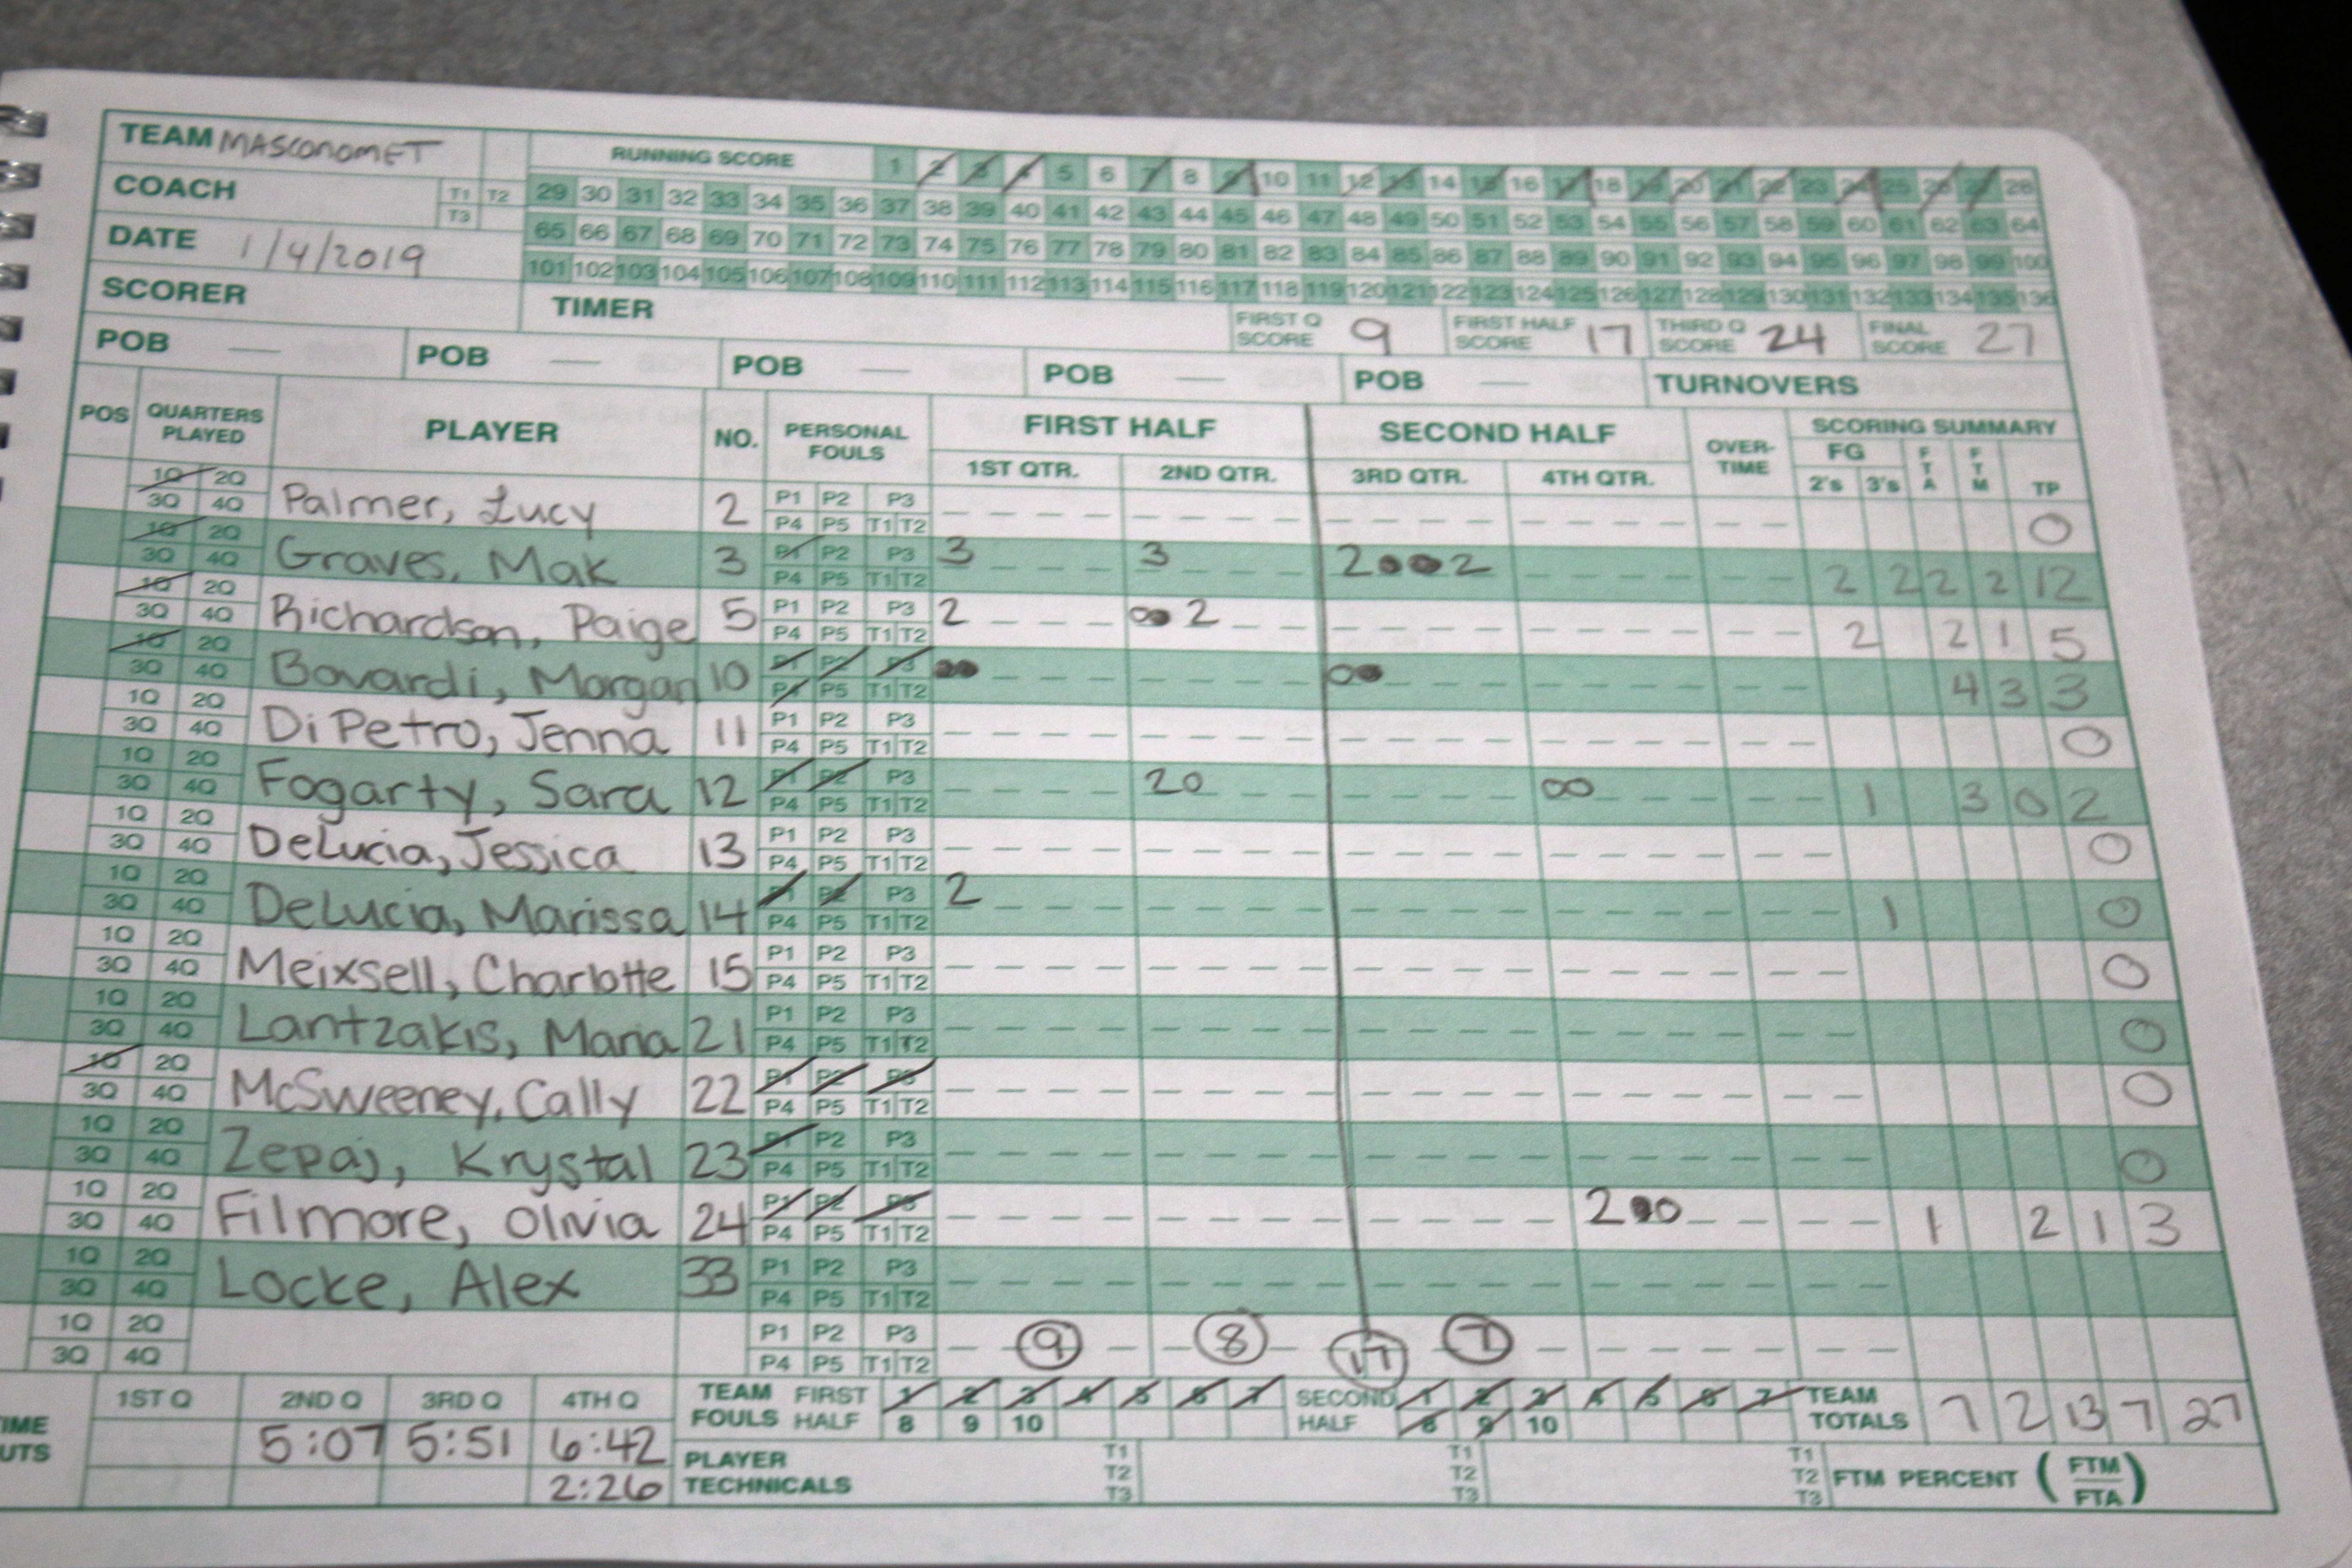 TEAM MASCONOMET RUNNING SCORE 1 2 3 4 5 6 7 8 9 10 11 12 13 14 15 16 17 18 19 20 21 22 23 24 25 26 27 28
COACH T1 T2 29 30 31 32 33 34 35 36 37 38 39 40 41 42 43 44 45 46 47 48 49 50 51 52 53 54 55 56 57 58 59 60 61 62 63 64
T3
DATE 1/4/2019 65 66 67 68 69 70 71 72 73 74 75 76 77 78 79 80 81 82 83 84 85 86 87 88 89 90 91 92 93 94 95 96 97 98 99 100
101 102 103 104 105 106 107 108 109 110 111 112 113 114 115 116 117 118 119 120 121 122 123 124 125 126 127 128 129 130 131 132 133 134 135 136
SCORER TIMER FIRST Q SCORE 9 FIRST HALF SCORE 17 THIRD Q SCORE 24 FINAL SCORE 27
POB — POB — POB — POB — POB — TURNOVERS
POS QUARTERS PLAYED PLAYER NO. PERSONAL FOULS FIRST HALF SECOND HALF OVER-TIME SCORING SUMMARY
1ST QTR. 2ND QTR. 3RD QTR. 4TH QTR. FG 2's 3's FTA FTM TP
1Q 2Q Palmer, Lucy 2 P1 P2 P3 0
3Q 4Q P4 P5 T1 T2
1Q 2Q Graves, Mak 3 P1 P2 P3 3 3 2 2 2 2 2 2 12
3Q 4Q P4 P5 T1 T2
1Q 2Q Richardson, Paige 5 P1 P2 P3 2 2 2 2 1 5
3Q 4Q P4 P5 T1 T2
1Q 2Q Bovardi, Morgan 10 P1 P2 P3 4 3 3
3Q 4Q P4 P5 T1 T2
1Q 2Q DiPetro, Jenna 11 P1 P2 P3 0
3Q 4Q P4 P5 T1 T2
1Q 2Q Fogarty, Sara 12 P1 P2 P3 20 00 1 3 0 2
3Q 4Q P4 P5 T1 T2
1Q 2Q DeLucia, Jessica 13 P1 P2 P3 0
3Q 4Q P4 P5 T1 T2
1Q 2Q DeLucia, Marissa 14 P1 P2 P3 2 1 0
3Q 4Q P4 P5 T1 T2
1Q 2Q Meixsell, Charlotte 15 P1 P2 P3 0
3Q 4Q P4 P5 T1 T2
1Q 2Q Lantzakis, Maria 21 P1 P2 P3 0
3Q 4Q P4 P5 T1 T2
1Q 2Q McSweeney, Cally 22 P1 P2 P3 0
3Q 4Q P4 P5 T1 T2
1Q 2Q Zepaj, Krystal 23 P1 P2 P3 0
3Q 4Q P4 P5 T1 T2
1Q 2Q Filmore, Olivia 24 P1 P2 P3 2 0 1 2 1 3
3Q 4Q P4 P5 T1 T2
1Q 2Q Locke, Alex 33 P1 P2 P3
3Q 4Q P4 P5 T1 T2
1Q 2Q P1 P2 P3 9 8 17 7
3Q 4Q P4 P5 T1 T2
1ST Q 2ND Q 3RD Q 4TH Q TEAM FOULS FIRST HALF 1 2 3 4 5 6 7 SECOND HALF 1 2 3 4 5 6 7 TEAM TOTALS 7 2 13 7 27
8 9 10 8 9 10
IME UTS 5:07 5:51 6:42 PLAYER TECHNICALS T1 T1 T1 FTM PERCENT (FTM
2:26 T2 T2 T2 FTA)
T3 T3 T3